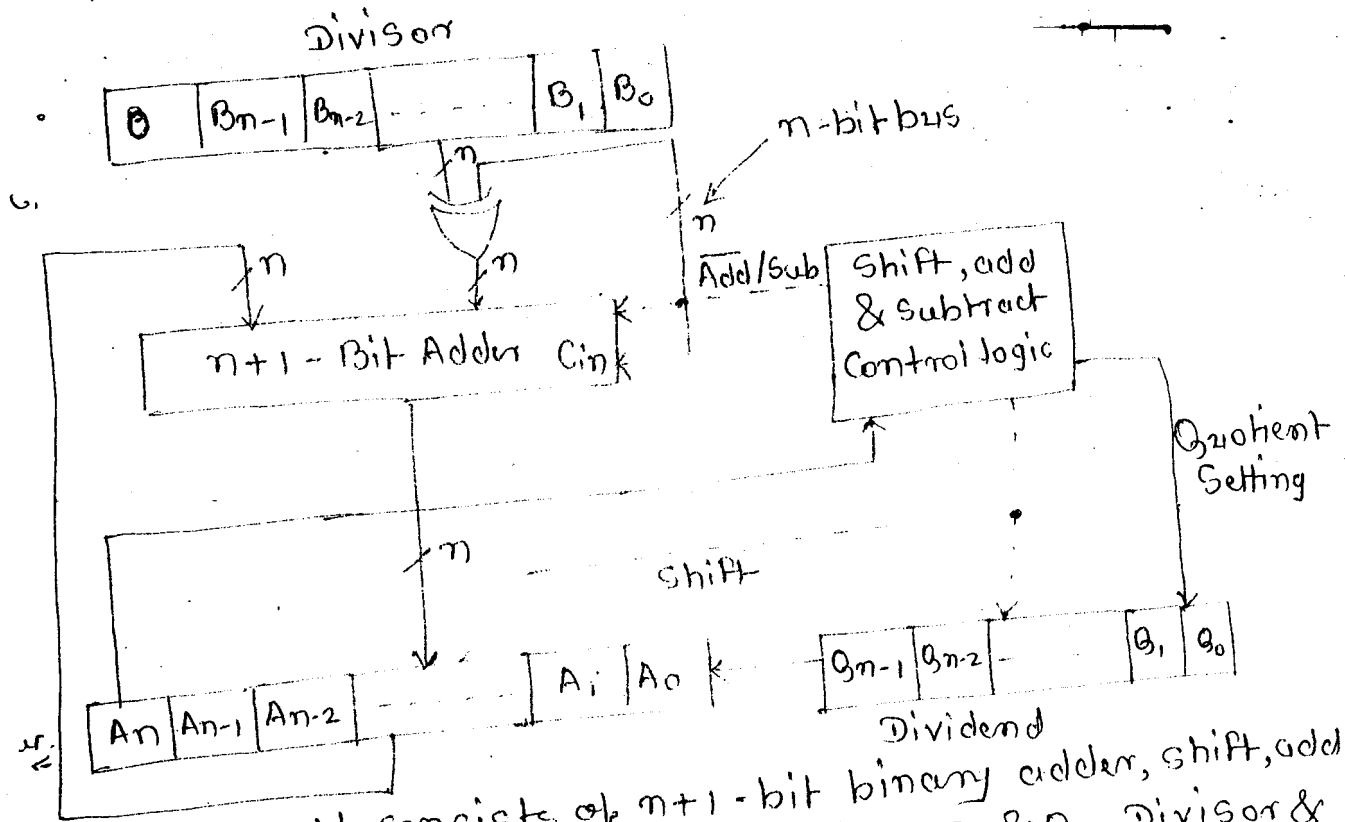 Divisor
0 Bn-1 Bn-2 B1 B0
n
n-bit bus
n
n
n
Add/Sub
Shift, add
& Subtract
Control logic
n+1 - Bit Adder Cin
Quotient
Setting
n
Shift
An An-1 An-2 A1 A0
Qn-1 Qn-2 Q1 Q0
Dividend
consists of n+1 - bit binary adder, shift, add
Divisor &